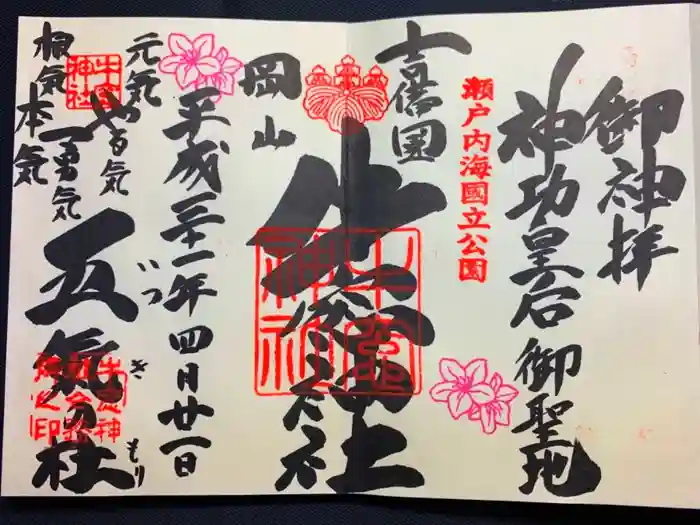 御神拝
神功皇后御聖地
瀬戸内海國立公園
吉備国
岡山
牛窓神社
平成三十一年四月廿一日
元気
やる気
勇気
根気
本気
五気の社
いつ
き
もり
牛窓神社
牛窓神社